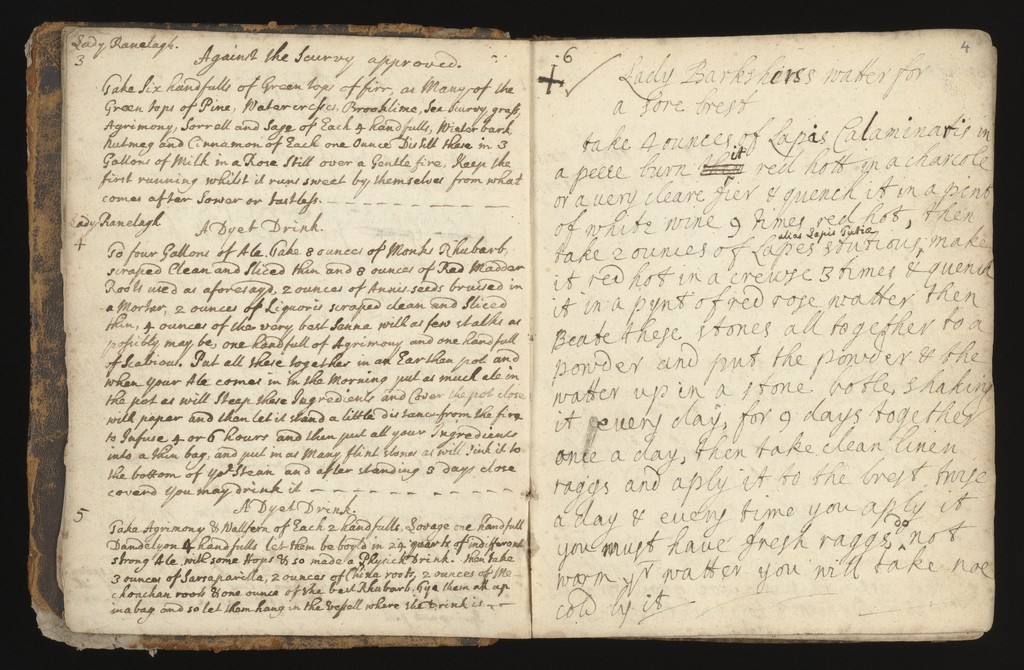 Lady Ranelagh.
3
Against the Scurvy approved.
Take Six handfulls of Green tops of firr, as Many of the
Green tops of Pine, Watercresses, Brooklime, Sea Scurvy grass,
Agrimony, Sorrell and Sage of Each 4 handfulls, Winter bark
Nutmeg and Cinnamon of Each one Ounce Distill these in 3
Gallons of Milk in a Rose Still over a Gentle fire, Keep the
first running whilst it runs sweet by themselves from what
comes after Sower or tastless.
Lady Ranelagh
4
A Dyet Drink.
To four Gallons of Ale, Take 8 ounces of Monks Rhubarb,
scraped Clean and Sliced thin and 8 ounces of Red Madder
Roots used as aforesayd, 2 ounces of Annis seeds bruised in
a Morter, 2 ounces of Liquoris scraped clean and Sliced
thin, 4 ounces of the very best Senna with as few stalks as
possibly may be, one handfull of Agrimony and one handfull
of Scabious. Put all these together in an Earthen pot and
when your Ale comes in in the Morning put as much ale in
the pot as will Steep these Ingredients and Cover the pot close
with paper and then let it stand a little distance from the fire
to Infuse 4 or 6 hours and then put all your Ingredients
into a thin bag, and put in as Many flint stones as will Sink it to
the bottom of yor Stean and after standing 3 days close
coverd you may drink it
5
A Dyet Drink.
Take Agrimony & Wallfern of Each 2 handfulls, Lovage one handfull
Dandelyon 4 handfulls let them be boyld in 24 quarts of indifferent
Strong Ale with some Hops & so made a Physick Drink. then take
3 ounces of Sarsaparilla, 2 ounces of China roots, 2 ounces of Me-
choachan roots & one ounce of the best Rhubarb, tye them all up
in a bag and so let them hang in the Vessell where the Drink is
6
4
Lady Barkshirss watter for
a sore brest
take 4 ounces of Lapis Calaminaris in
a peece burn it red hott in a charcole
or a very cleare fier & quench it in a pint
of white wine 9 times red hot, then
alias Lapis Tutia
take 2 ounces of Lapes make
it red hot in a crewse 3 times & quench
it in a pynt of red rose watter, then
Beate these stones all together to a
powder and put the powder & the
watter up in a stone botle, shaking
it every day, for 9 days together
once a day, then take clean linen
raggs and aply it to the brest, twise
a day & every time you aply it
you must have fresh raggs, do not
warm yr watter you will take noe
cold by it